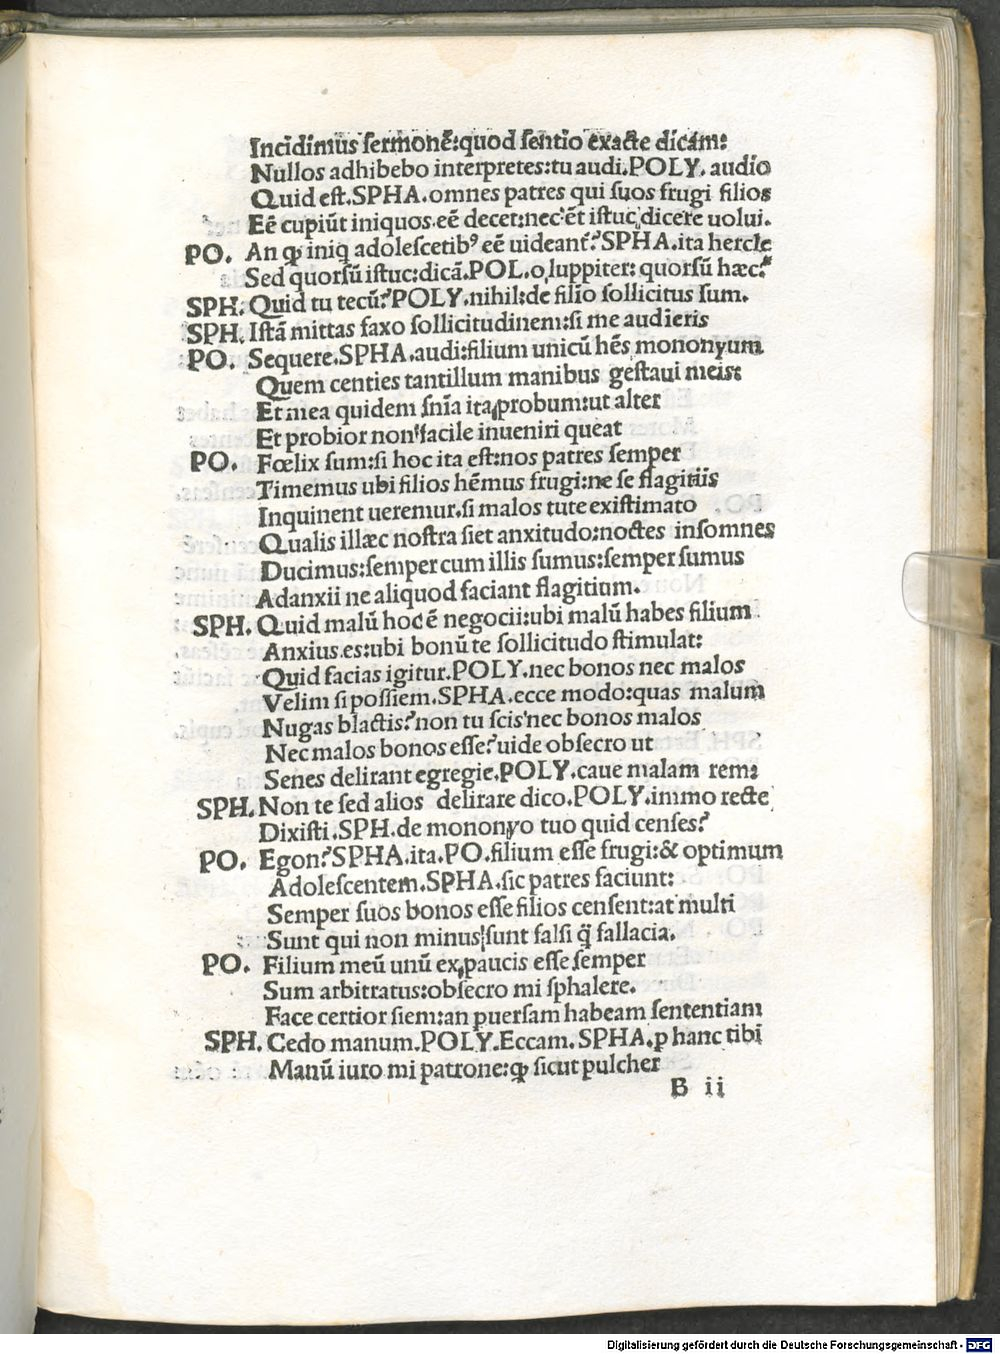 Incidimus sermonē:quod sentio exacte dicam:
Nullos adhibebo interpretes:tu audi.POLY. audio
Quid est.SPHA.omnes patres qui suos frugi filios
Eē cupiūt iniquos.eē decet:nec ēt istuc dicere uolui.
PO. An ꝙ iniq adolescētibꝰ eē uideant̄?SPHA.ita hercle
Sed quorsū istuc:dicā.POL.o Iuppiter: quorsū hæc?
SPH. Quid tu tecū?POLY.nihil:de filio sollicitus sum.
SPH. Istā mittas faxo sollicitudinem:si me audieris
PO. Sequere.SPHA.audi:filium unicū hēs mononyum
Quem centies tantillum manibus gestaui meis:
Et mea quidem sn̄ia ita probum:ut alter
Et probior non facile inueniri queat
PO. Fœlix sum:si hoc ita est:nos patres semper
Timemus ubi filios hēmus frugi:ne se flagitiis
Inquinent ueremur.si malos tute existimato
Qualis illæc nostra siet anxitudo:noctes insomnes
Ducimus:semper cum illis sumus:semper sumus
Adanxii ne aliquod faciant flagitium.
SPH. Quid malū hoc ē negocii:ubi malū habes filium
Anxius es:ubi bonū te sollicitudo stimulat:
Quid facias igitur.POLY.nec bonos nec malos
Velim si possiem.SPHA.ecce modo:quas malum
Nugas blactis?non tu scis nec bonos malos
Nec malos bonos esse?uide obsecro ut
Senes delirant egregie.POLY.caue malam rem:
SPH. Non te sed alios delirare dico.POLY.immo recte
Dixisti.SPH.de mononyo tuo quid censes?
PO. Egon?SPHA.ita.PO.filium esse frugi:& optimum
Adolescentem.SPHA.sic patres faciunt:
Semper suos bonos esse filios censent:at multi
Sunt qui non minus sunt falsi q̄ fallacia.
PO. Filium meū unū ex paucis esse semper
Sum arbitratus:obsecro mi sphalere.
Face certior siem:an puersam habeam sententiam
SPH. Cedo manum.POLY.Eccam.SPHA.p hanc tibi
Manū iuro mi patrone:ꝙ sicut pulcher
B ii
Digitalisierung gefördert durch die Deutsche Forschungsgemeinschaft - DFG